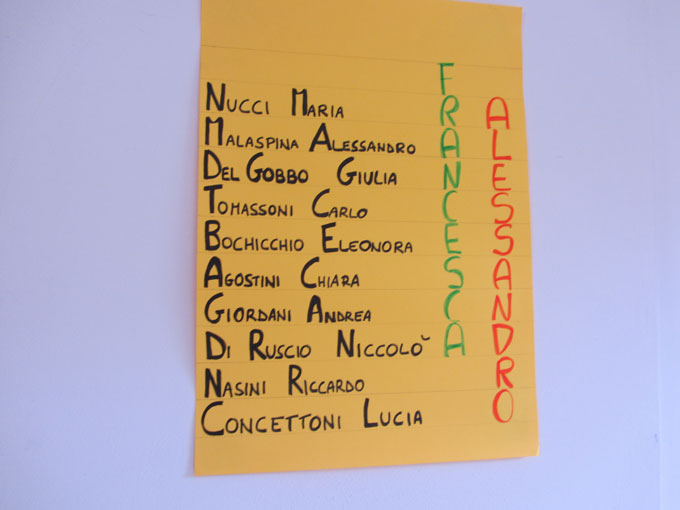 Nucci Maria
Malaspina Alessandro
Del Gobbo Giulia
Tomassoni Carlo
Bochicchio Eleonora
Agostini Chiara
Giordani Andrea
Di Ruscio Niccolò
Nasini Riccardo
Concettoni Lucia
FRANCESCA
ALESSANDRO